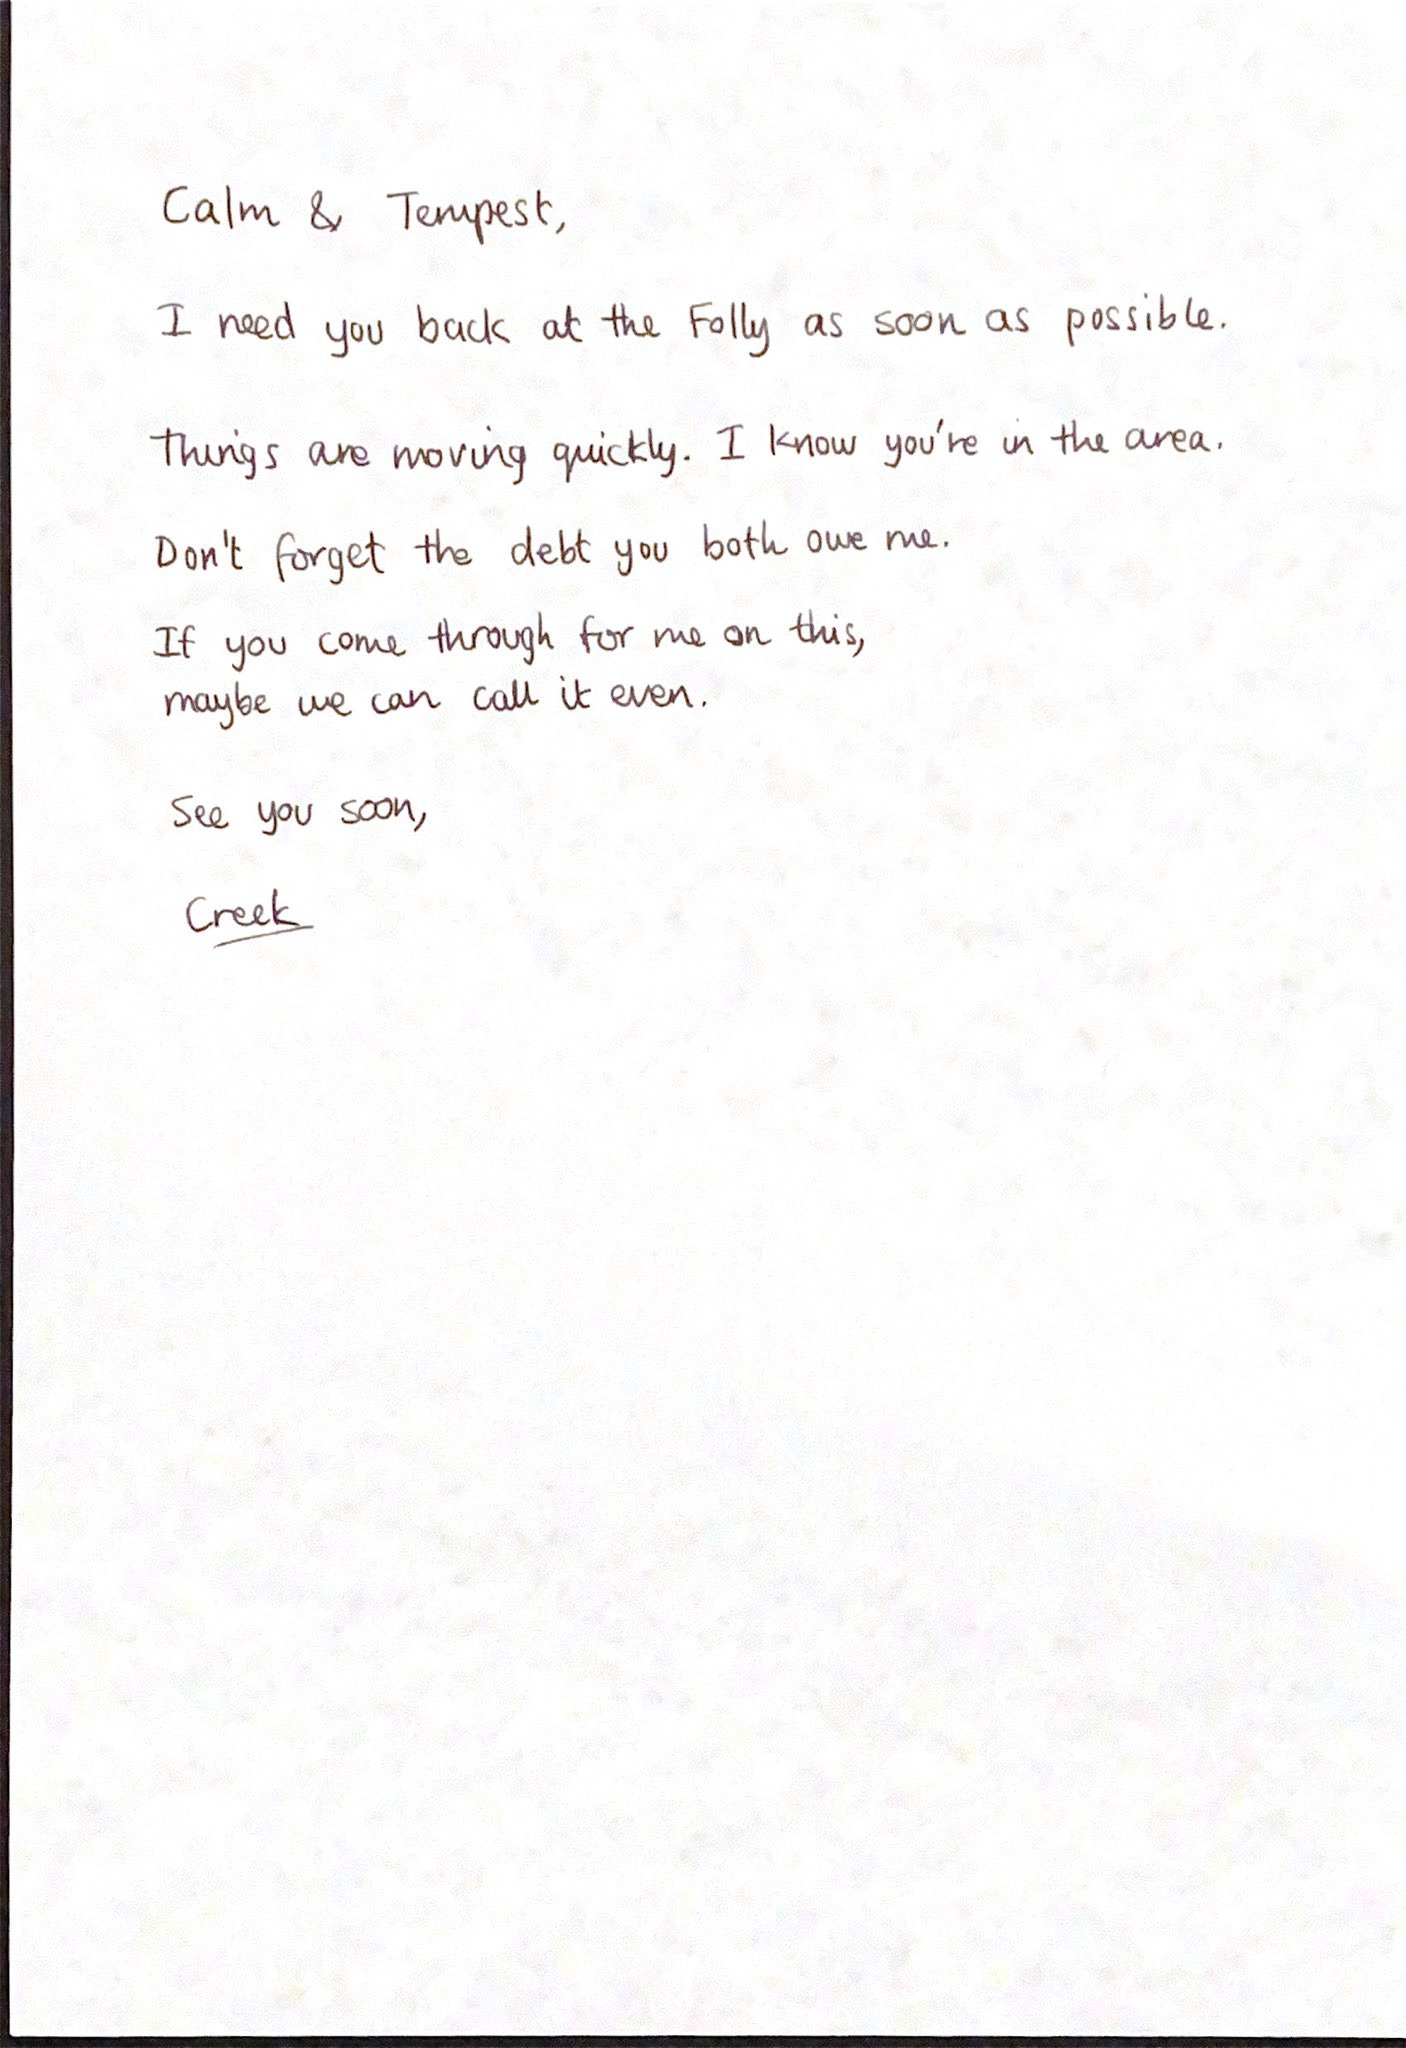 Calm & Tempest,
I need you back at the Folly as soon as possible.
Things are moving quickly. I know you're in the area.
Don't forget the debt you both owe me.
If you come through for me on this,
maybe we can call it even.
See you soon,
Creek